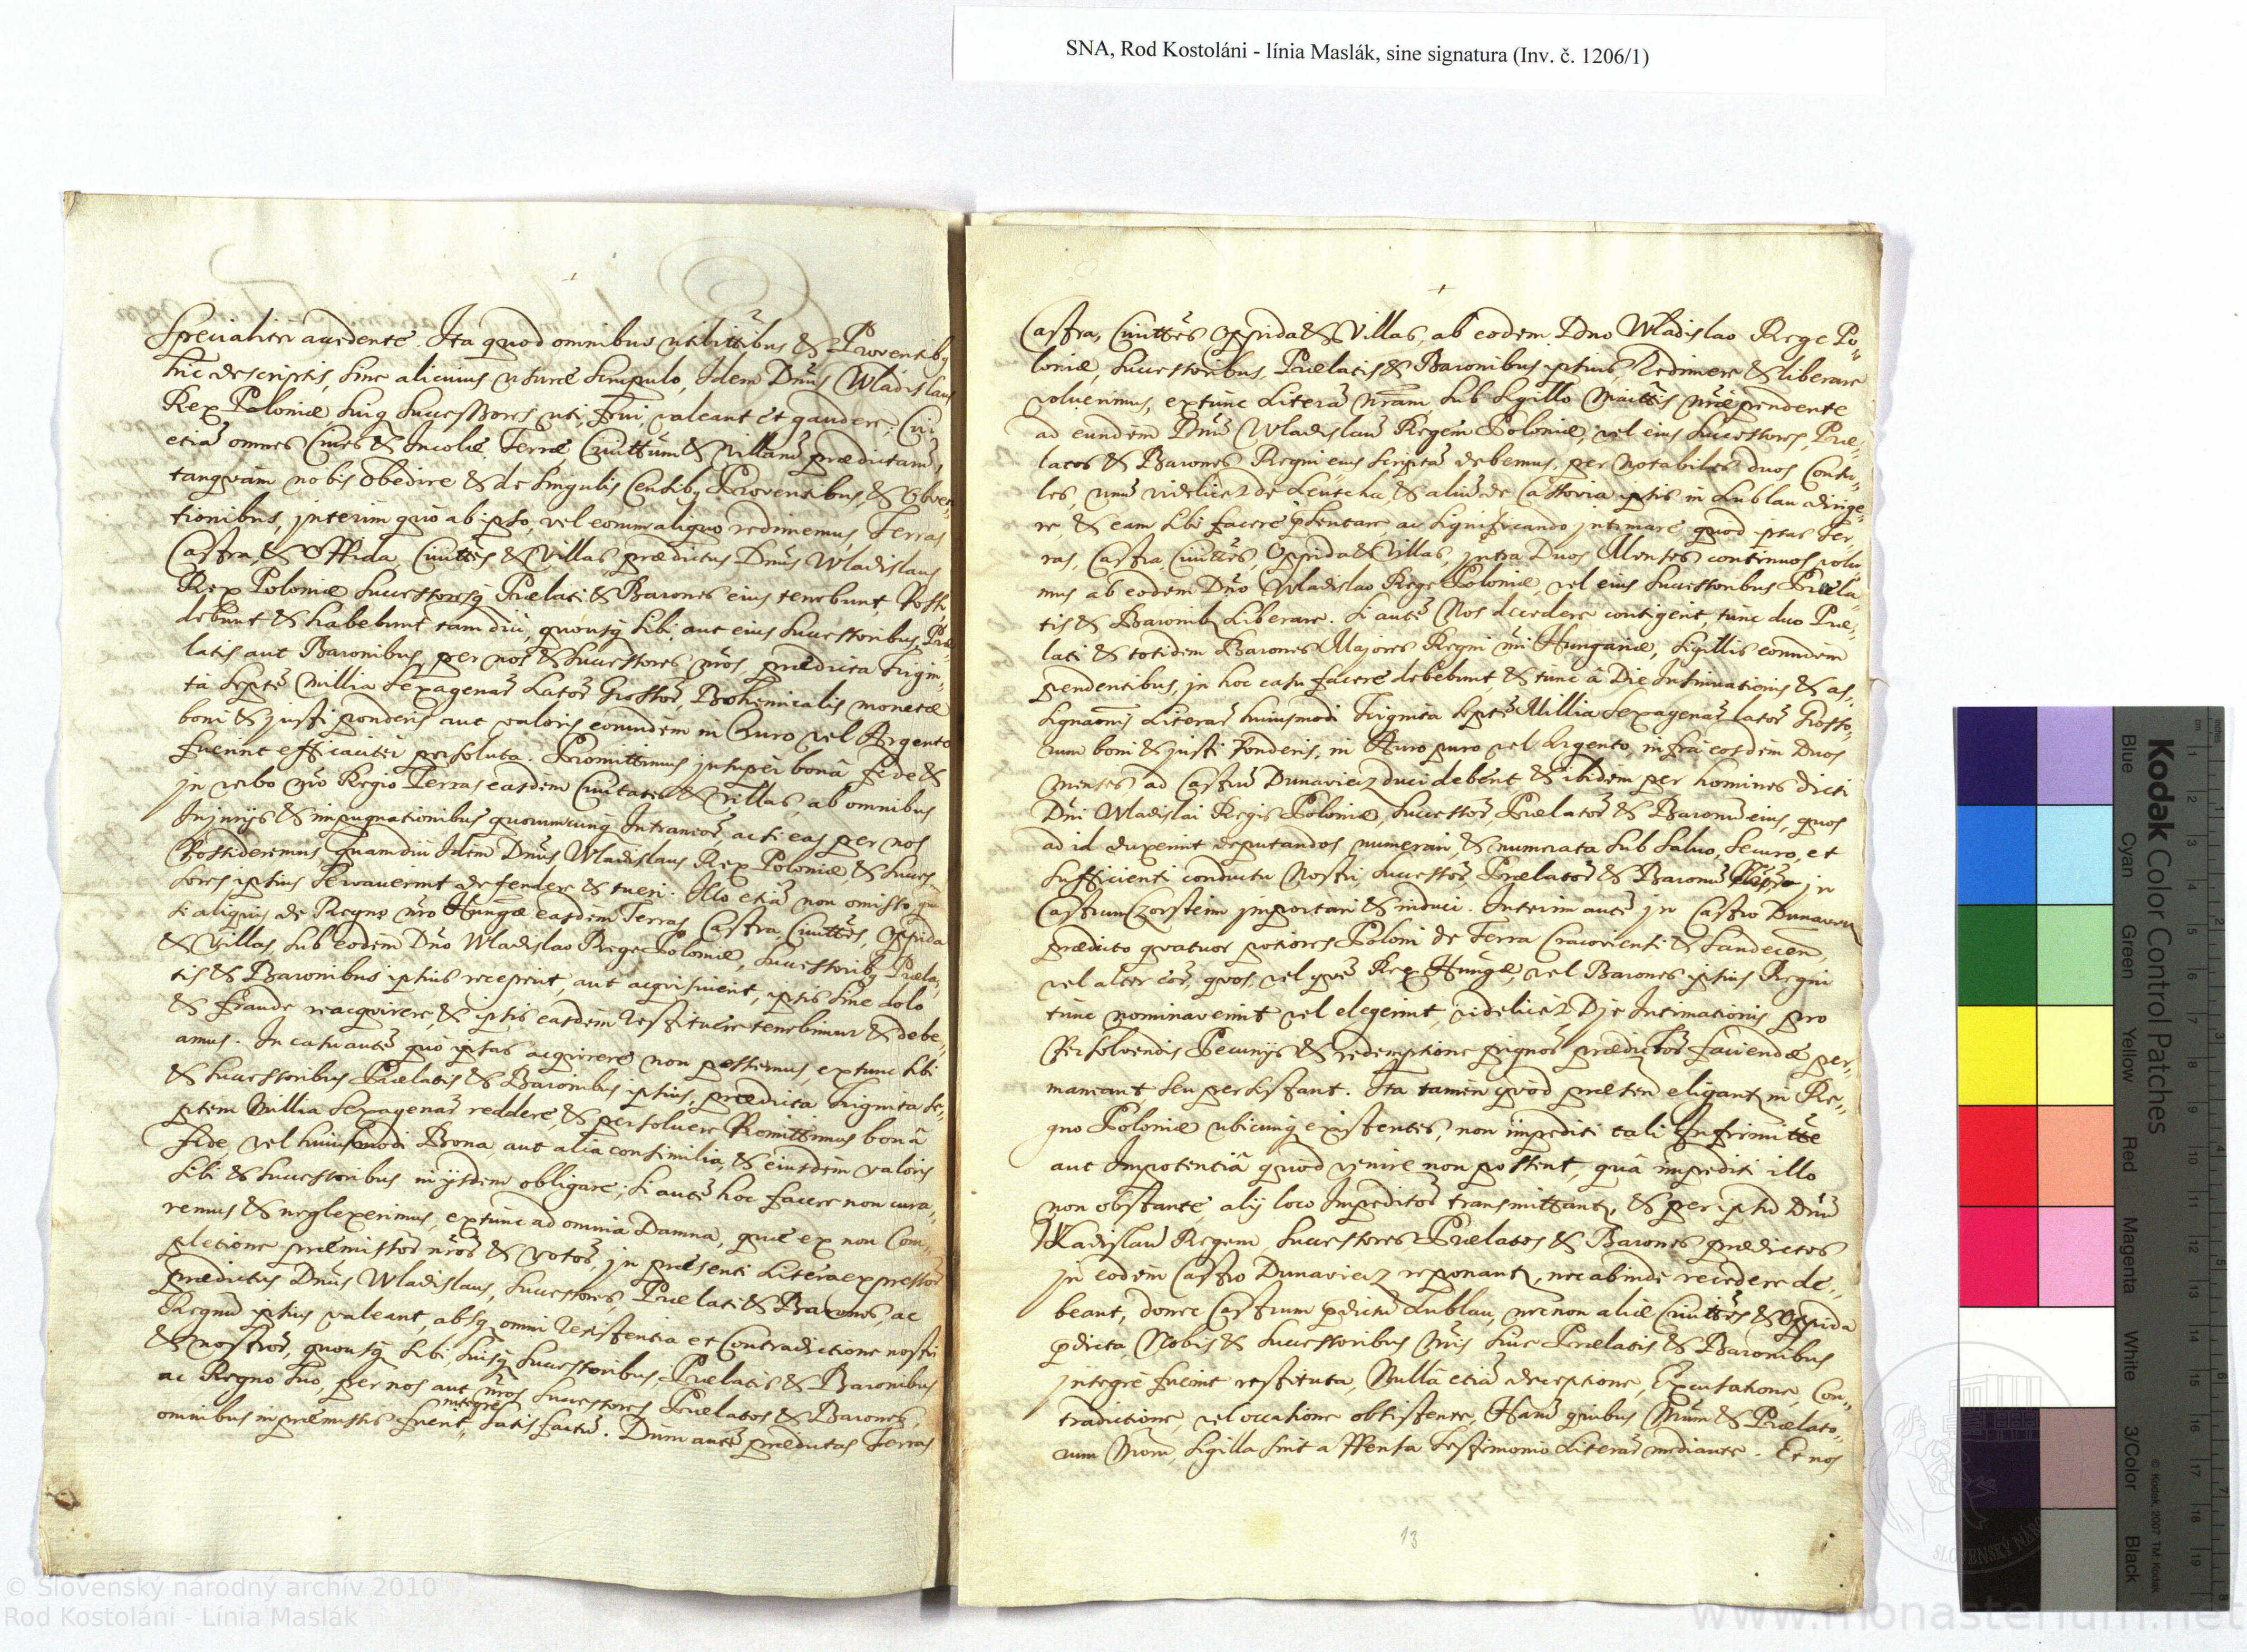 SNA, Rod Kostoláni - línia Maslák, sine signatura (Inv. č. 1206/1)
Specialiter accedente. Ita quod omnibus utilittibus & Proventibq
hic descriptis, sine alicuius usurae scrupulo, Idem Dnus Wladislaus
Rex Poloniae suiq Successores uti, frui, valeant et gaudere; Cui
etiã omnes Cives & Incolae Terrae Civittum & Villarũ praedictarũ,
tanqvam nobis obedire & de singulis Censibq Proventibus, & Obven„
tionibus, interim quo ab ipso, vel eorum aliquo redimemus, Terras
Castra, & Oppida, Civittes & Villas, praedictus Dnus Wladislaus
Rex Poloniae Successoresq Praelati & Barones eius tenebunt, Possi„
debunt & habebunt tam diu, quousq sibi, aut eius Successoribus, Prae„
latis aut Baronibus, per nos & Successores nros, praedicta Trigin„
ta Septẽ Millia Sexagenarũ Latorũ Grossorũ, Bohemicalis monetae
boni & justi ponderis aut valoris eorundem in Auro vel Argento
fuerint efficaciter persoluta. Promittimus insuper bonâ fide &
in verbo nro Regio Terras easdem Civitates & Villas, ab omnibus
Injurijs & impugnationibus quorumcunq Intrancorũ, ac si eas per nos
Possideremus, quamdiu Idem Dnus Wladislaus Rex Poloniae, & Succes„
sores ipsius servaverint defendere & tueri. Illo etiã non omisso, qd
si aliquis de Regno nro Hungae easdem Terras, Castra, Civittes, Oppida
& Villas, sub eodem Dno Wladislao Rege Poloniae, Successoribq Praela„
tis & Baronibus ipsius receperit, aut acqvisiverit, ipsis sine dolo
& fraude reacqvirere, & ipsis easdem restituere tenebimur & debe„
amus. In casu autẽ quo ipsas acqvirere non possemus, extunc sibi
& Successoribus Praelatis & Baronibus ipsius, praedicta Triginta Se„
ptem Millia Sexagenarũ reddere, & persolvere Promittimus bonâ
fide, vel huiusmodi Bona aut alia consimilia, & eiusdem valoris
sibi & Successoribus in ijsdem obligare; si autẽ hoc facere non cura„
remus & neglexerimus, extunc ad omnia Damna, quae ex non Com„
pletione praemissorũ nrorũ & votorũ, in praesenti Litera expressorũ
praedictus Dnus Wladislaus, Successores, Praelati & Barones, ac
Regnũ ipsius valeant, absq omni resistentia et Contradictione nostri
& nostrorũ, quousq sibi, suisq Successoribus, Praelatis & Baronibus
ac Regno suo, per nos aut nros Successores Praelatos & Barones,
integre
omnibus in praemissis fuerit„ satis factũ. Dum autẽ praedictas Terras
Castra, Civittes Oppida & Villas, ab eodem Dno Wladislao Rege Po„
loniae, Successoribus, Praelatis & Baronibus ipsius, Redimere & liberare
voluerimus, extunc Literã nram, sub Sigillo Maittis nrae pendente
ad eundem Dnũ Wladislaũ Regem Poloniae, vel eius Successores, Prae„
latos & Barones Regni eius scriptã debemus, per Notabiles duos Consu„
les, unũ videlicet de Leutscha, & aliũ de Cassovia ipsis in Lublau dirige„
re, & eam sibi facere pŝentare, ac significando intimare, quod ipsas Ter„
ras, Castra, Civittes, Oppida & Villas, intra Duos Menses continuos, volu„
mus ab eodem Dno Wladislao Rege Poloniae, vel eius Successoribus Praela„
tis & Baronibq Liberare. Si autẽ Nos decedere contigerit, tunc duo Prae„
lati & totidem Barones Majores Regni nri Hungariae, Sigillis eorundem
pendentibus, in hoc casu facere debebunt, & tunc â Die Intimationis & as„
signaonis Literarũ huiusmodi Triginta Septẽ Millia Sexagenarũ latorũ Grosso„
rum boni & justi Ponderis, in Auro puro vel Argento, infra eosdem Duos
Menses ad Castrũ Dunaviecz duci debent, & ibidem per homines dicti
Dni Wladislai Regis Poloniae, Successorũ, Praelatorũ & Baronũ eius, quos
ad id duxerint deputandos, numerari, & numerata sub salvo, Securo, et
sufficienti conductu Nostri, Successorũ, Praelatorũ & Baronũ in
Castrum Czorstein importari & induci. Interim autẽ in Castro Dunavecz
praedicto qvatuor potiores Poloni de Terra Cracoviensi & Sandecen,
vel alter eorũ, quos, vel quẽ Rex Hungae, vel Barones ipsius Regni
tunc nominaverint vel elegerint, videlicet Die Intimationis, pro
Persolvendis Pecunijs & redemptione pignorũ praedictorũ faciendae per„
maneant seu persistant. Ita tamen qvod praesten eligantq in Re„
gno Poloniae ubicunq existentes, non impediti tali Infirmitte
aut Impotentiâ quod venire non possent, quâ impediti illo
non obstante alij loco Impeditorũ transmittantq, & per ipsũ Dnũ
Wladislaũ Regem, Successores, Praelatos & Barones praedictos
in eodem Castro Dunaviecz reponantq, nec abinde recedere de„
beant, donec Castrum pdictũ Lublau, necnon aliae Civittes & Oppida
pdicta, Nobis & Successoribus nris sive Praelatis & Baronibus
integre fuerint restituta, Nullâ etiã deceptione, Excusatione, Con„
tradictione, vel occasione obsistente, Harũ quibus Nrum & Praelato„
rum Nrorũ, Sigilla sint appensa testimonio Literarũ mediante. Et nos
13
Kodak Color Control Patches
Blue Cyan Green Yellow Red Magenta White 3/Color Black
© Kodak, 2007 TM: Kodak
© Slovenský národný archív 2010
Rod Kostoláni - Línia Maslák
www.monasterium.net